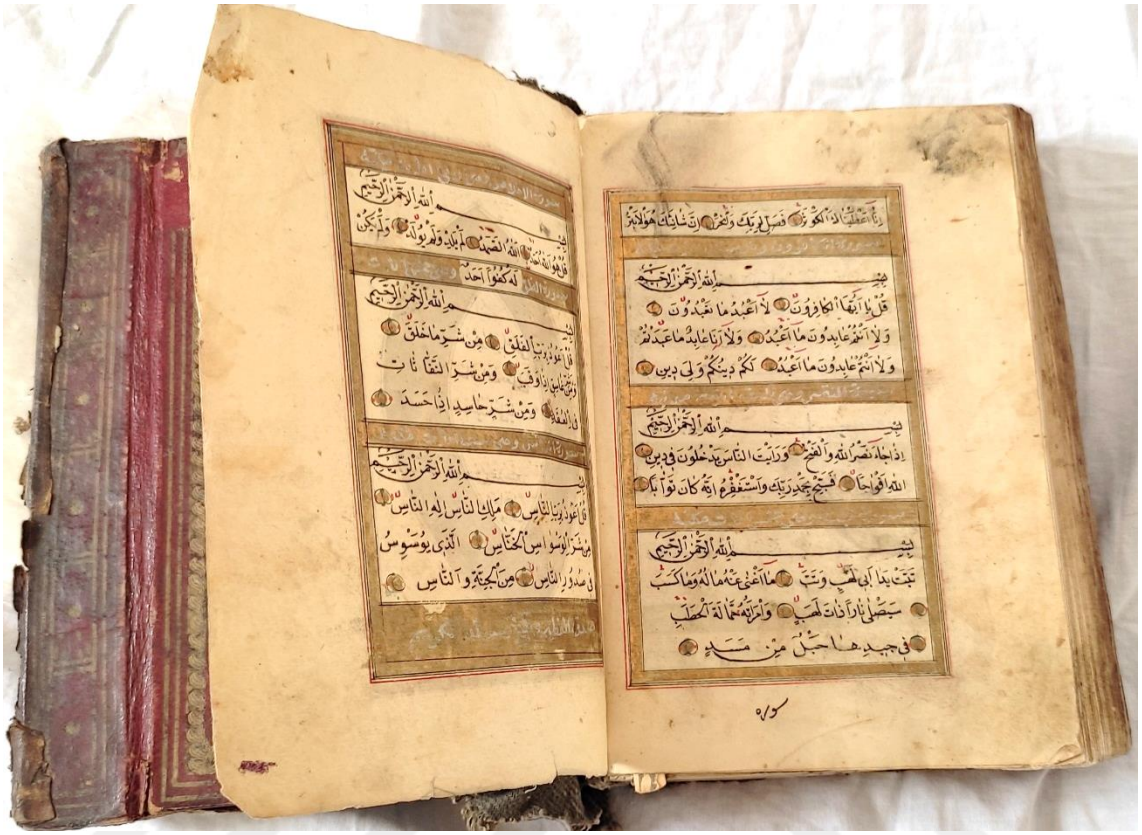 إنا أعطيناك الكوثر فصل لربك وانحر إن شانئك هو الابتر
بسم الله الرحمن الرحيم
قل يا أيها الكافرون لا أعبد ما تعبدون
ولا أنتم عابدون ما أعبد ولا أنا عابد ما عبدتم
ولا أنتم عابدون ما أعبد لكم دينكم ولى دين
بسم الله الرحمن الرحيم
إذا جاء نصر الله والفتح ورايت الناس يدخلون فى دين
الله افواجا فسبح بحمد ربك واستغفره انه كان توابا
بسم الله الرحمن الرحيم
تبت يدا أبى لهب وتب ما أغنى عنه ماله وما كسب
سيصلى نارا ذات لهب وامراته حمالة الحطب
فى جيدها حبل من مسد
سوره
سورة الاخلاص وهى اربع
بسم الله الرحمن الرحيم
قل هو الله احد الله الصمد لم يلد ولم يولد ولم يكن
سورة الفلق له كفوا احد
بسم الله الرحمن الرحيم
قل أعوذ برب الفلق من شر ما خلق
ومن شر غاسق اذا وقب ومن شر النفاثات
فى العقد ومن شر حاسد اذا حسد
بسم الله الرحمن الرحيم
قل أعوذ برب الناس ملك الناس اله الناس
من شر الوسواس الخناس الذى يوسوس
فى صدور الناس من الجنة والناس